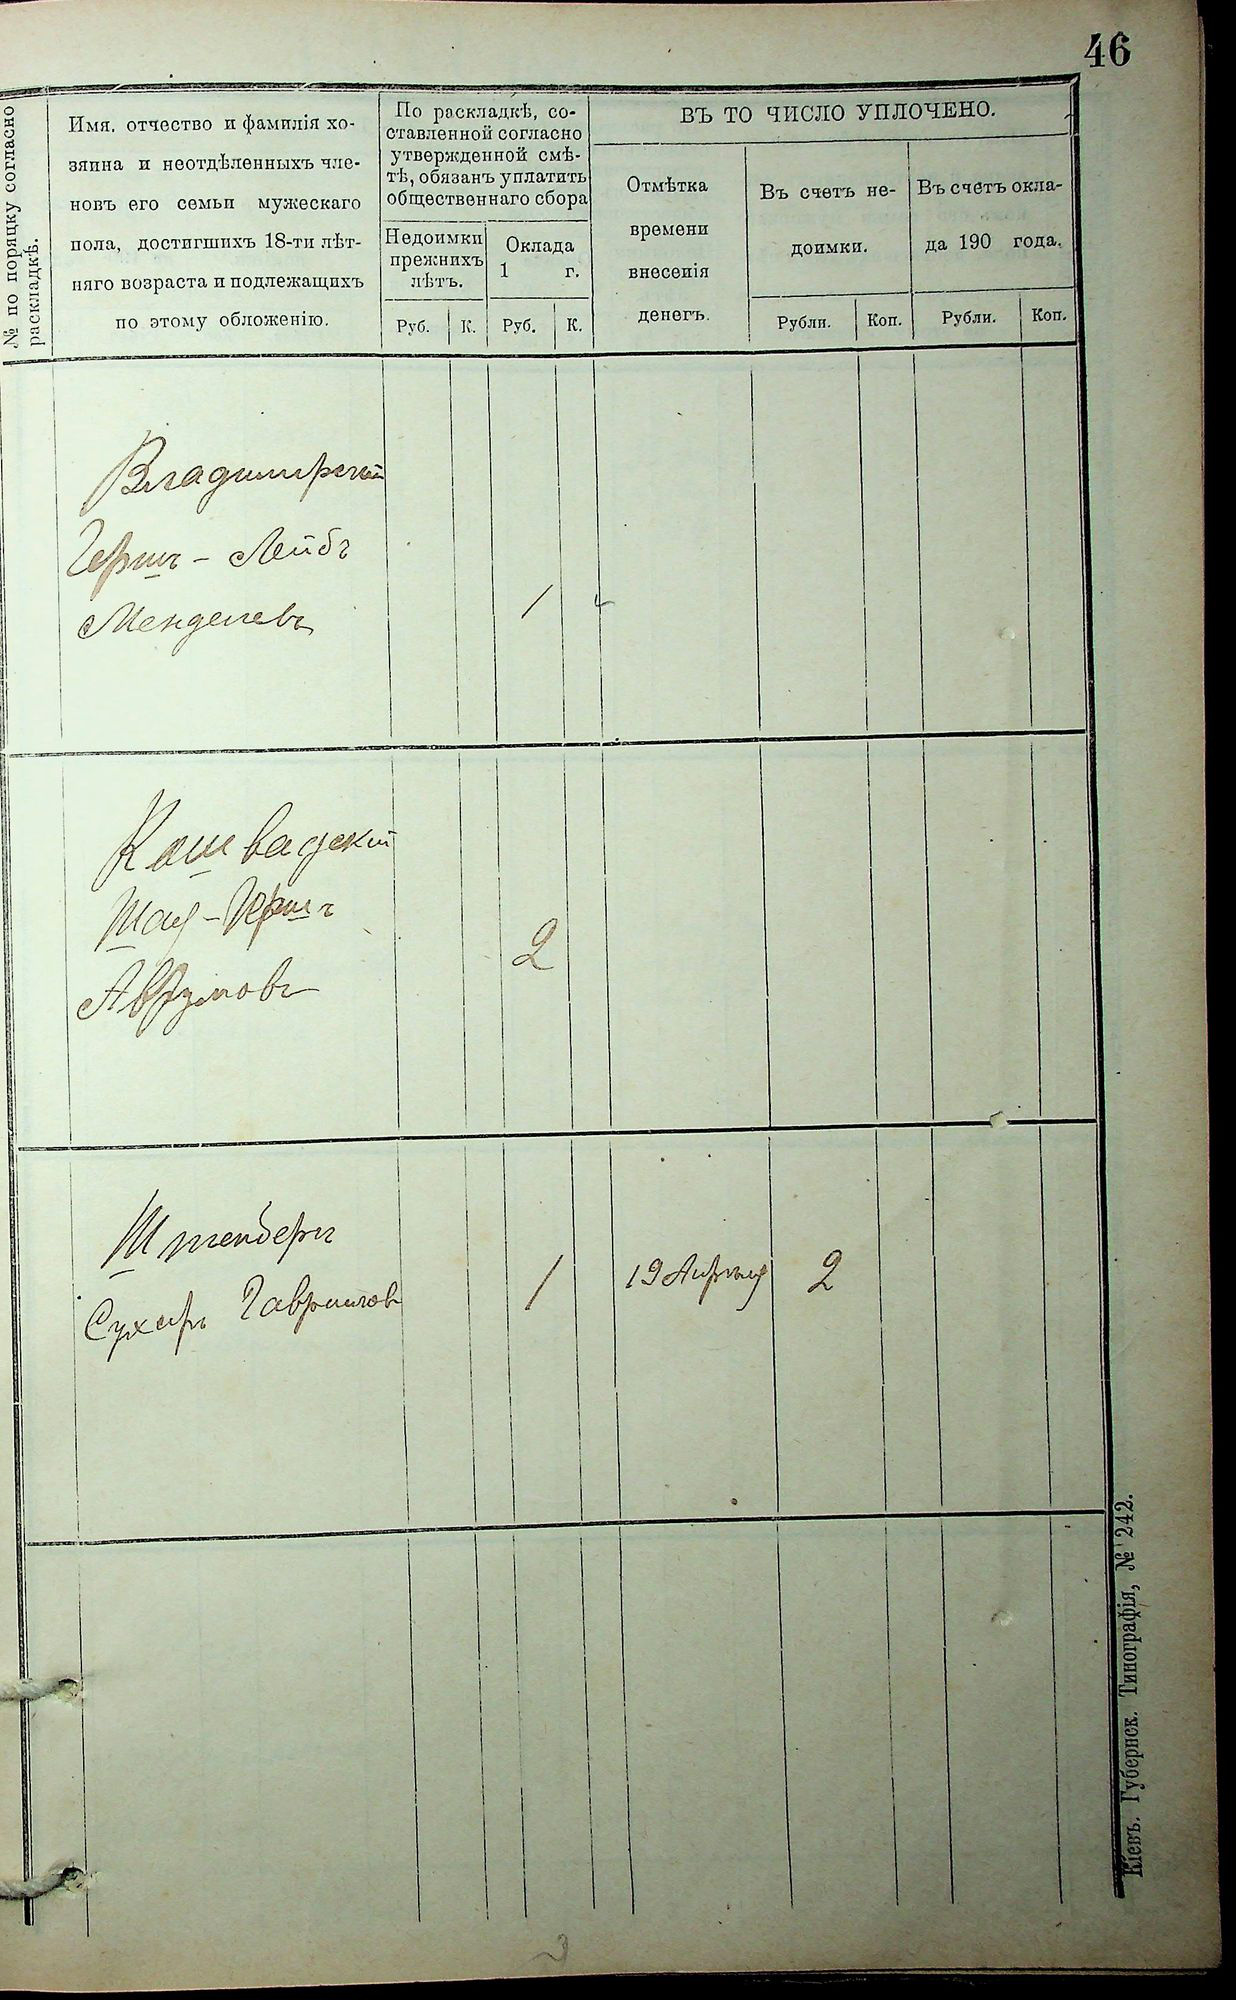 46
№ по поряцку согласно
раскладкѣ.
Имя, отчество и фамилія хо-
зяина и неотдѣленныхъ чле-
новъ его семьи мужескаго
пола, достигшихъ 18-ти лѣт-
няго возраста и подлежащихъ
по этому обложенію.
По раскладкѣ, со-
ставленной согласно
утвержденной смѣ-
тѣ, обязанъ уплатить
общественнаго сбора
Недоимки
прежнихъ
лѣтъ.
Оклада
1 г.
Руб. К. Руб. К.
ВЪ ТО ЧИСЛО УПЛОЧЕНО.
Отмѣтка
времени
внесенія
денегъ.
Въ счетъ не-
доимки.
Въ счетъ окла-
да 190 года.
Рубли. Коп. Рубли. Коп.
Владимирскій
Гершъ - Лейбъ
Менделевъ 1
2
Аврумовъ
Штенберг
Сухеръ Гавриловъ 1 19 Апрыля 2
Кіевъ. Губернск. Типографія, № 242.
3